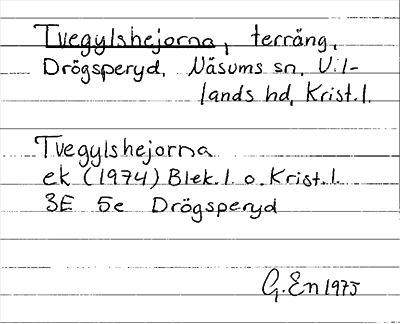 Tvegylshejorna, terräng,
Drögsperyd, Näsums sn, Vil-
lands hd, Krist.l.
Tvegylshejorna
ek (1974) Blek.l. o. Krist.l.
3E 5e Drögsperyd
G.En 1975